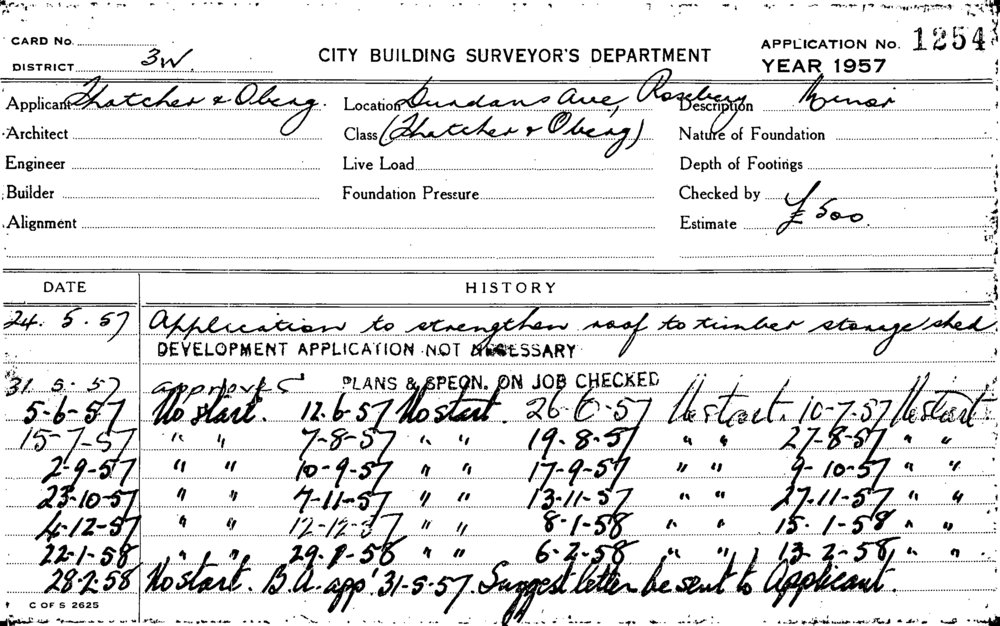 CARD No.
DISTRICT 3W.
CITY BUILDING SURVEYOR'S DEPARTMENT
APPLICATION No. 1254
YEAR 1957
Applicant Thatcher & Oberg. Location Dundans Ave, Rosebery Description Minor
Architect Class (Thatcher & Oberg) Nature of Foundation
Engineer Live Load Depth of Footings
Builder Foundation Pressure Checked by
Alignment Estimate £500.
DATE HISTORY
24. 5. 57 Application to strengthen roof to timber storage shed
DEVELOPMENT APPLICATION NOT NECESSARY
31 5. 57 approved PLANS & SPECN. ON JOB CHECKED
5-6-57 No start. 12.6-57 No start. 26-6-57 No start. 10-7-57 No start.
15-7-57 " " 7-8-57 " " 19-8-57 " " 27-8-57 " "
2-9-57 " " 10-9-57 " " 17-9-57 " " 9-10-57 " "
23-10-57 " " 7-11-57 " " 13-11-57 " " 27-11-57 " "
4-12-57 " " 12-12-57 " " 8-1-58 " " 15-1-58 " "
22-1-58 " " 29-1-58 " " 6-2-58 " " 13-2-58 " "
28-2-58 No start. B.A. app'. 31-5-57. Suggest letter be sent to Applicant.
C OF S 2625